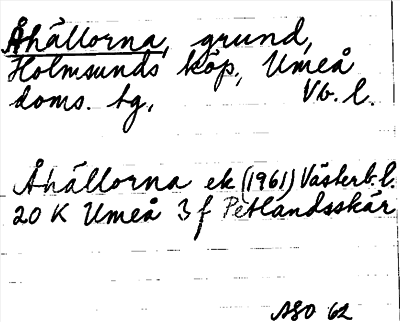 Åhällorna, grund,
Holmsunds köp, Umeå
doms. tg, Vb. l.
Åhällorna ek (1961) Västerb. l.
20 K Umeå 3 f Petlandsskär
ASO 62